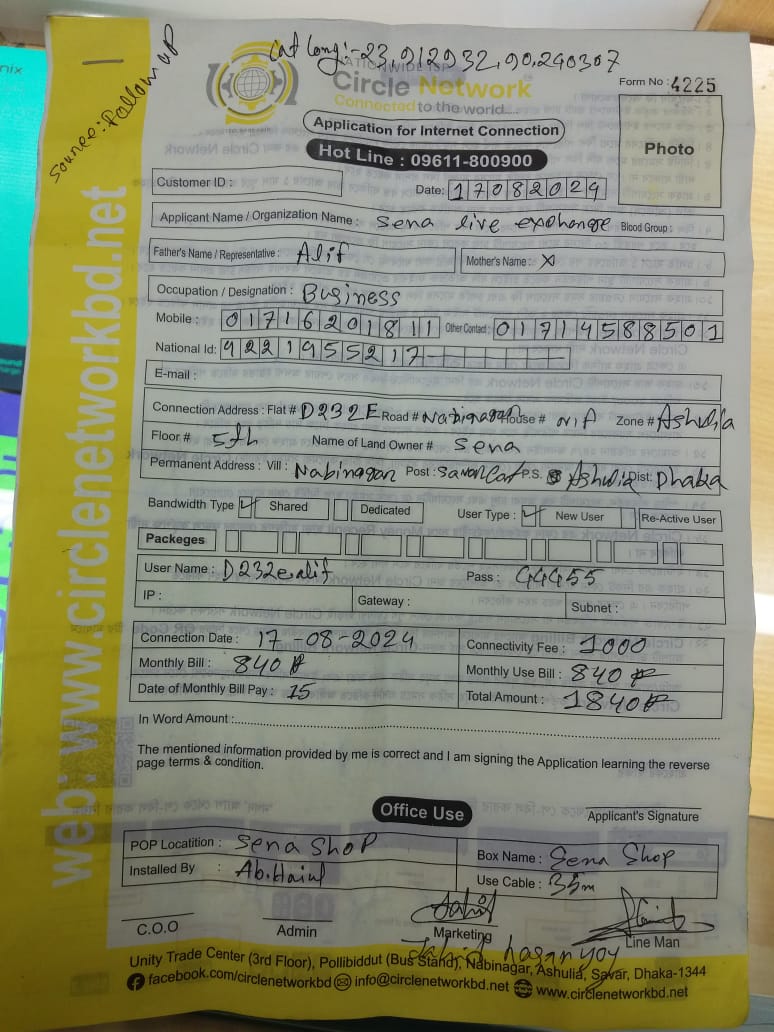 Lat long:- 23.912932, 90.240307
Source: Follow up
NATIONWIDE ISP
Circle Network
Connected to the world....
Form No : 4225
Application for Internet Connection
Hot Line : 09611-800900
Photo
Customer ID :
Date: 17082024
Applicant Name / Organization Name : Sena live exchange Blood Group :
Father's Name / Representative : Alif Mother's Name : X
Occupation / Designation : Business
Mobile : 01716201811 Other Contact : 01714588501
National Id: 9221955217
E-mail :
Connection Address : Flat # D232E Road # Nabinagar House # N/A Zone # Ashulia
Floor # 5th Name of Land Owner # Sena
Permanent Address : Vill : Nabinagar Post : Savar Cat P.S. Ashulia Dist: Dhaka
Bandwidth Type ✓ Shared Dedicated User Type : ✓ New User Re-Active User
Packeges
User Name : D232e.alif Pass : 44455
IP : Gateway : Subnet :
Connection Date : 17-08-2024 Connectivity Fee : 1000
Monthly Bill : 840 Monthly Use Bill : 840
Date of Monthly Bill Pay : 15 Total Amount : 1840
In Word Amount :
The mentioned information provided by me is correct and I am signing the Application learning the reverse
page terms & condition.
Office Use
Applicant's Signature
POP Locatition : Sena Shop Box Name : Sena Shop
Installed By : Use Cable : 35m
C.O.O Admin Marketing Line Man
Jahid hasan
Unity Trade Center (3rd Floor), Pollibiddut (Bus Stand), Nabinagar, Ashulia, Savar, Dhaka-1344
facebook.com/circlenetworkbd info@circlenetworkbd.net www.circlenetworkbd.net
web: www.circlenetworkbd.net